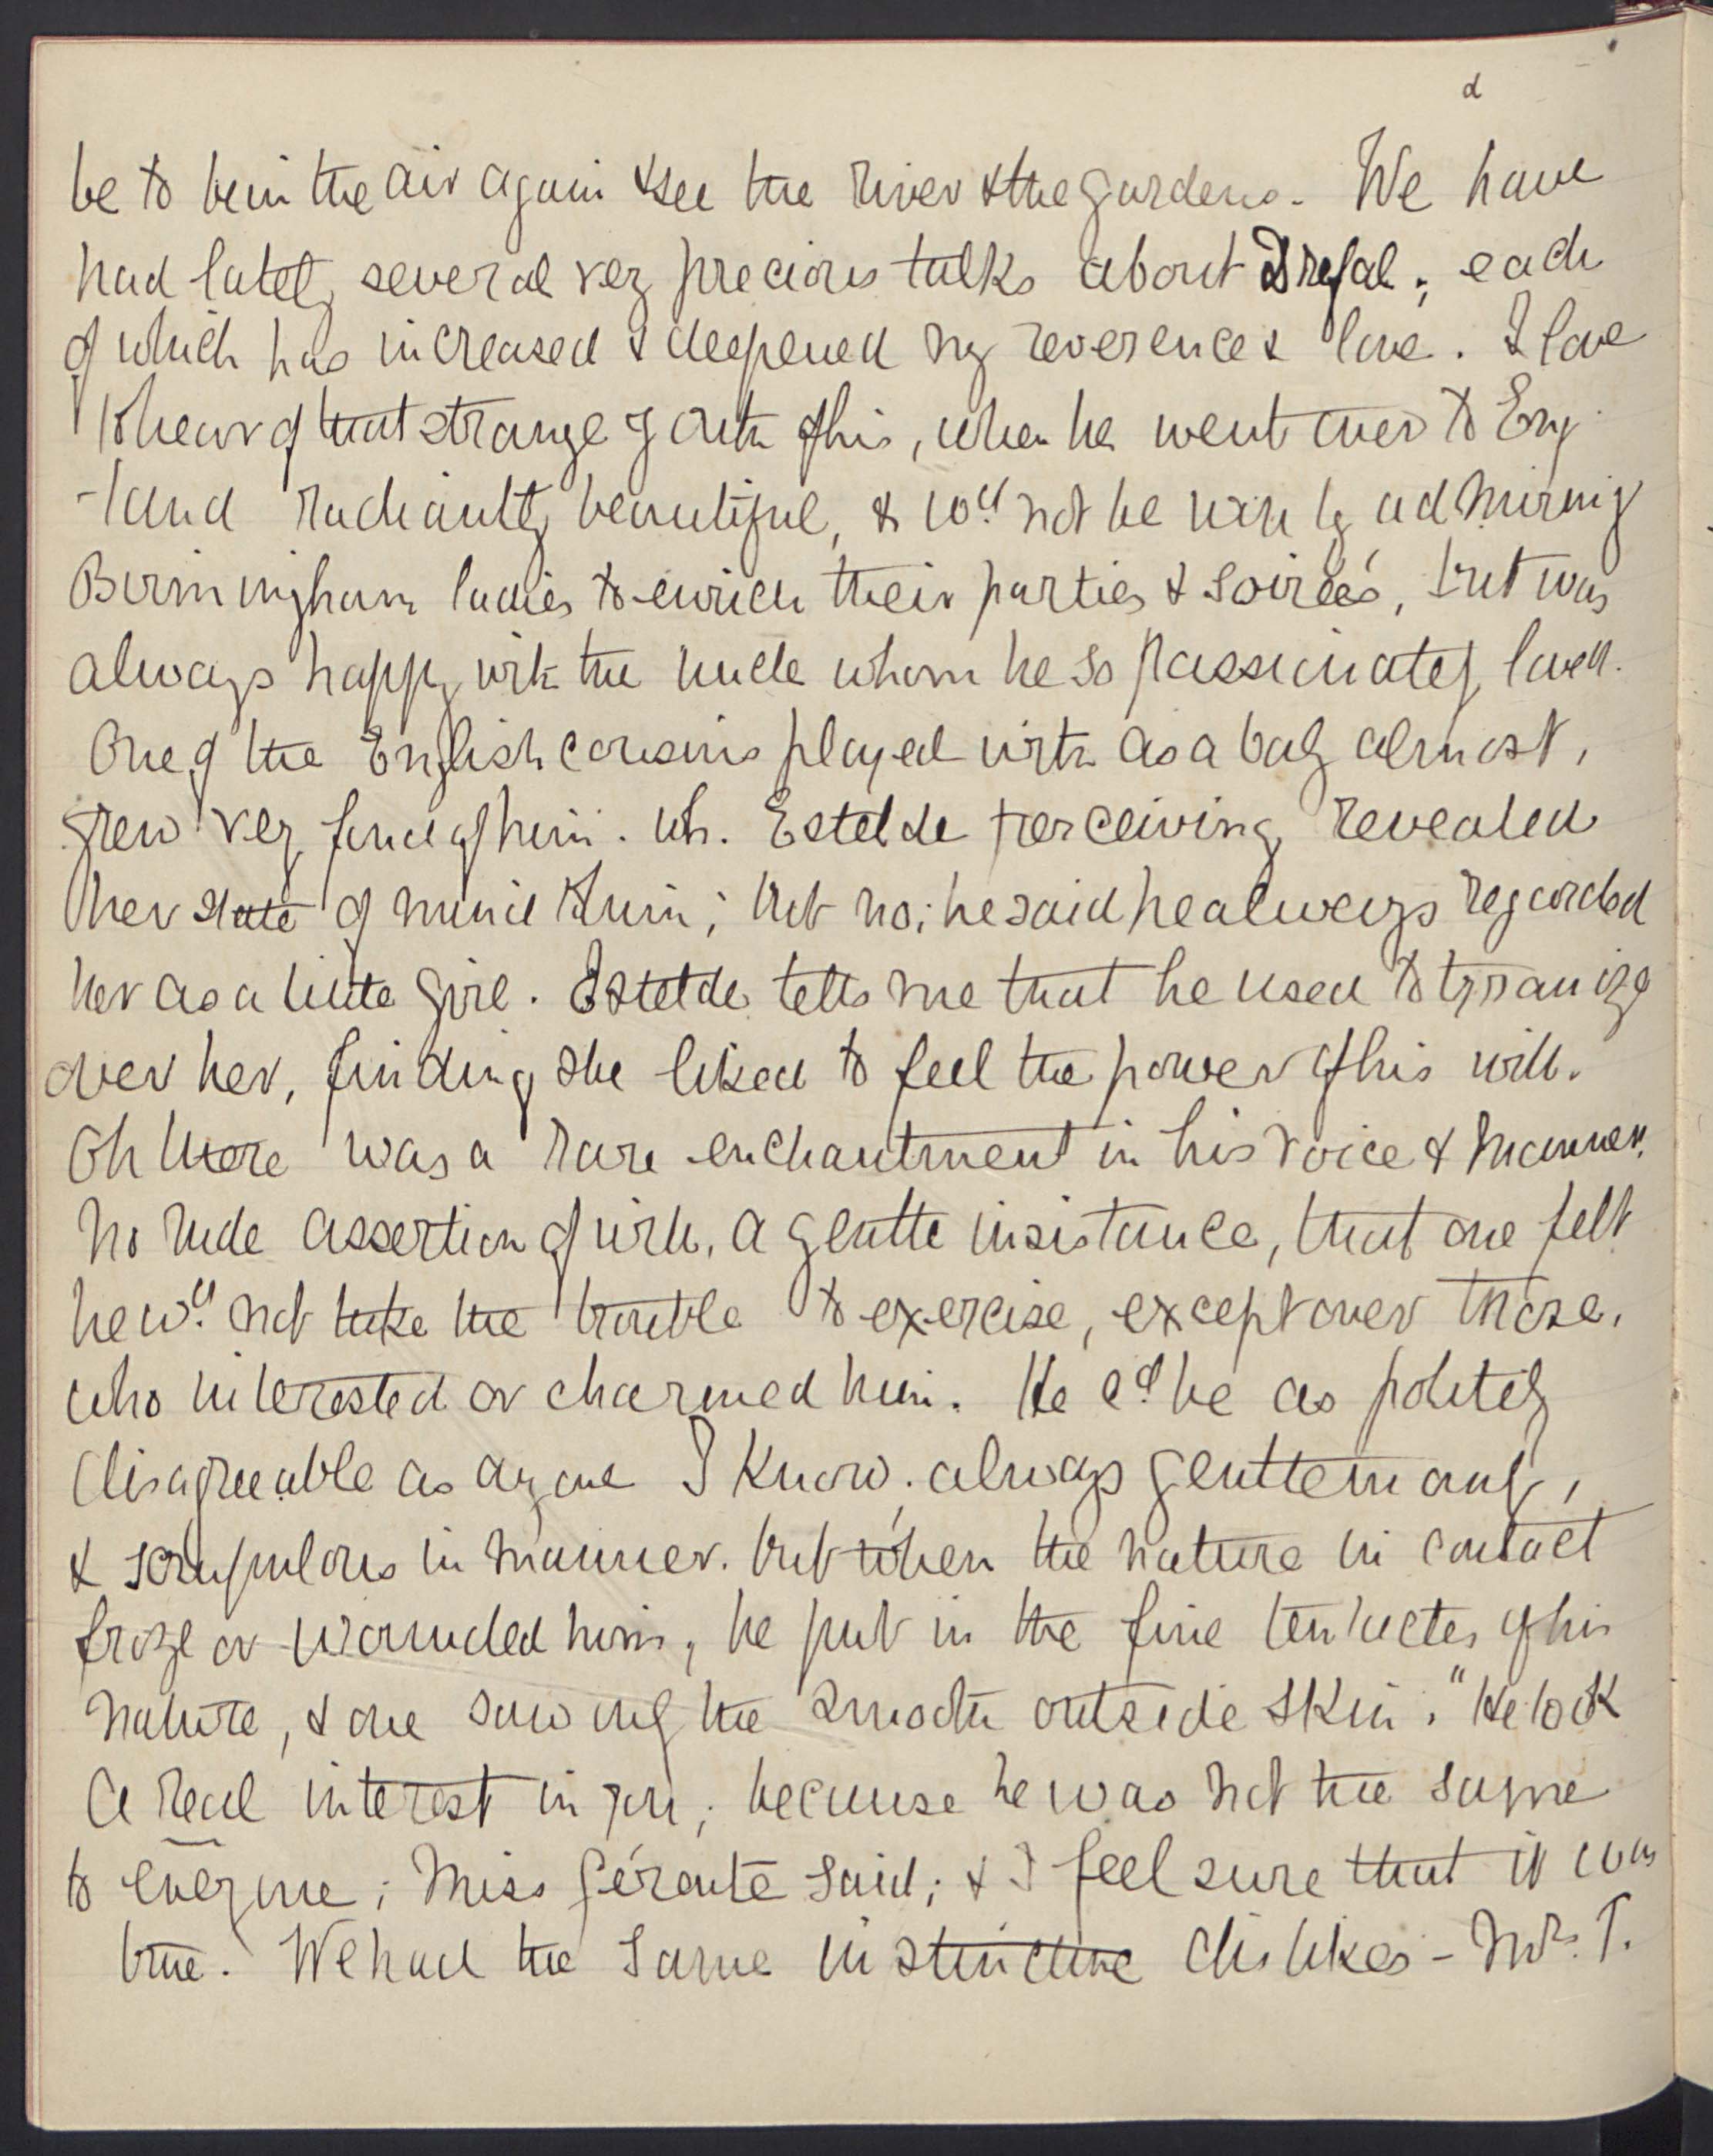 d
be to be in the air again & see the river & the gardens. We have
had lately several very precious talks about Drefal; each
of which has increased & deepened my reverence & love. I love
to hear of that strange youth of his, when he went over to Eng
-land radiantly beautiful, & wd. not be won by admiring
Birmingham ladies to enrich their parties & soirées, but was
always happy with the uncle whom he so passionately loved.
One of the English cousins played with as a baby almost,
grew very fond of him. wh. Estelde perceiving, revealed
her state of mind to him; but no; he said he always regarded
her as a little girl. Estelde tells me that he used to tyranize
over her, finding she liked to feel the power of his will.
Oh there was a rare enchantment in his voice & manner.
No rude assertion of will, a gentle insistance, that one felt
he wd. not take the trouble to exercise, except over those,
who interested or charmed him. He cd. be as politely
disagreeable as anyone I know. always gentlemanly,
& scrupulous in manner. but when the nature in contact
froze or wounded him, he put in the fine tentacles of his
nature, & one saw only the smooth outside skin. "He took
a real interest in you; because he was not the same
to everyone; Miss Géronte said; & I feel sure that it was
true. We had the same instinctive dislikes - Mrs. T.